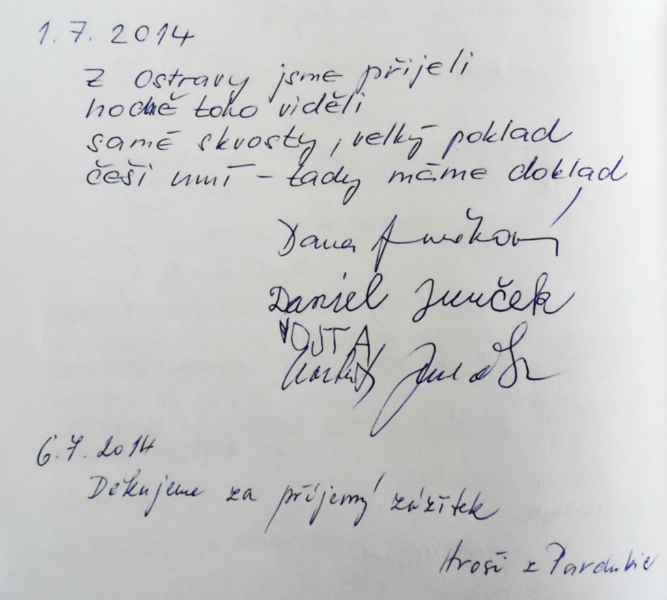 1.7.2014
z Ostravy jsme přijeli
hodně toho viděli
samé skvosty, velký poklad
češi umí - tady máme doklad
Dana
Daniel Jurček
VOJTA
6.7.2014
Děkujeme za příjemný zážitek
Hroši z Pardubic